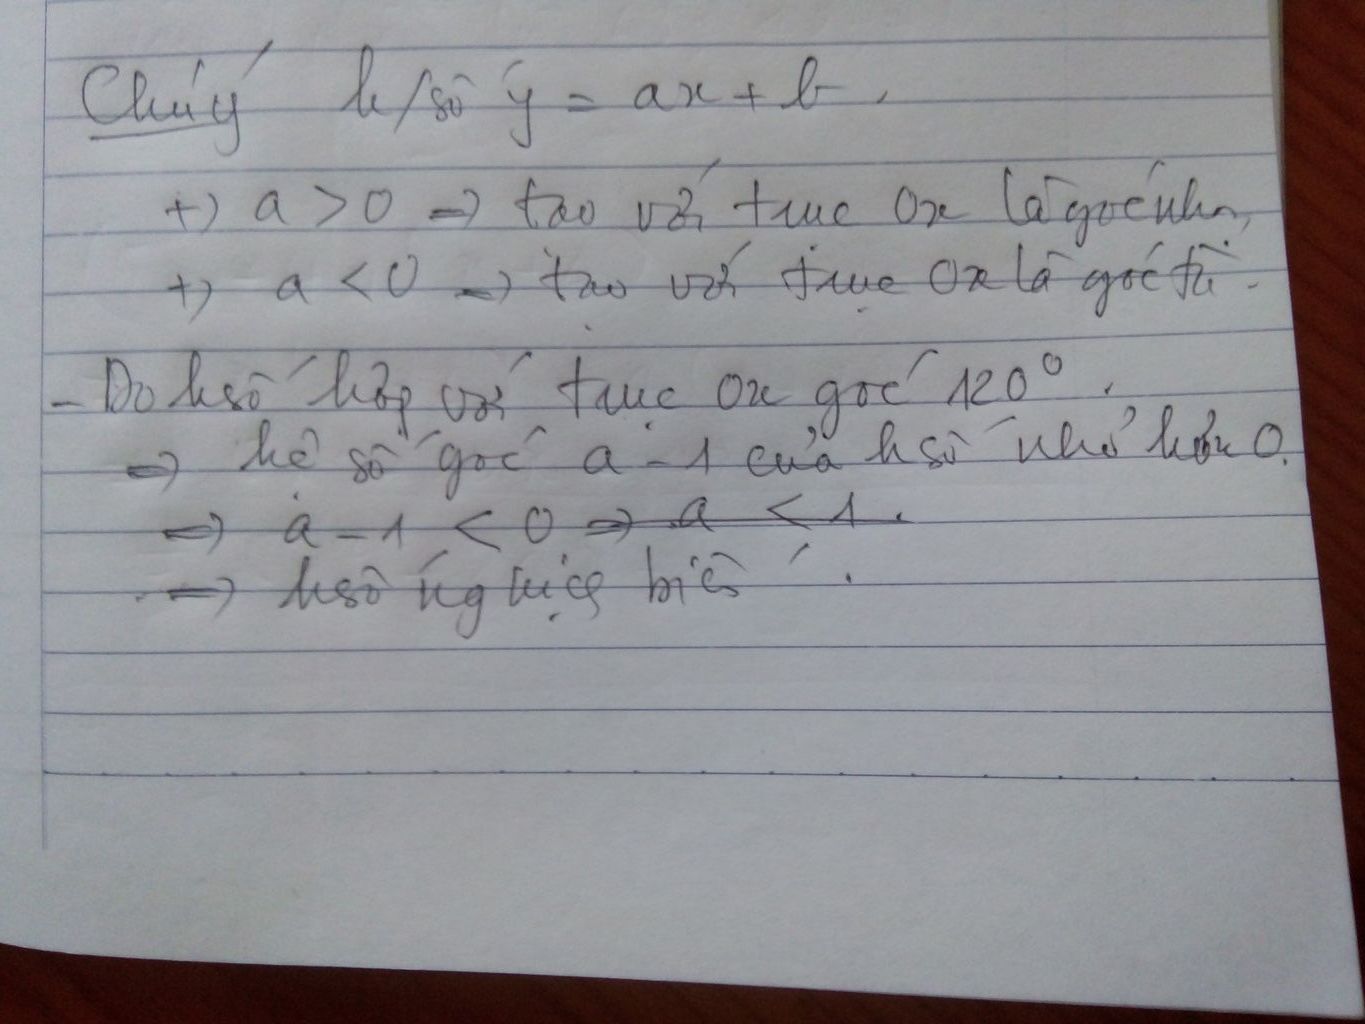 Chú ý h/số y = ax + b.
+) a > 0 => tạo với trục Ox là góc nhọn
+) a < 0 => tạo với trục Ox là góc tù.
- Do hsố hợp với trục Ox góc 120°.
=> hệ số góc a - 1 của hsố nhỏ hơn 0.
=> a - 1 < 0 => a < 1.
=> hsố nghịch biến.